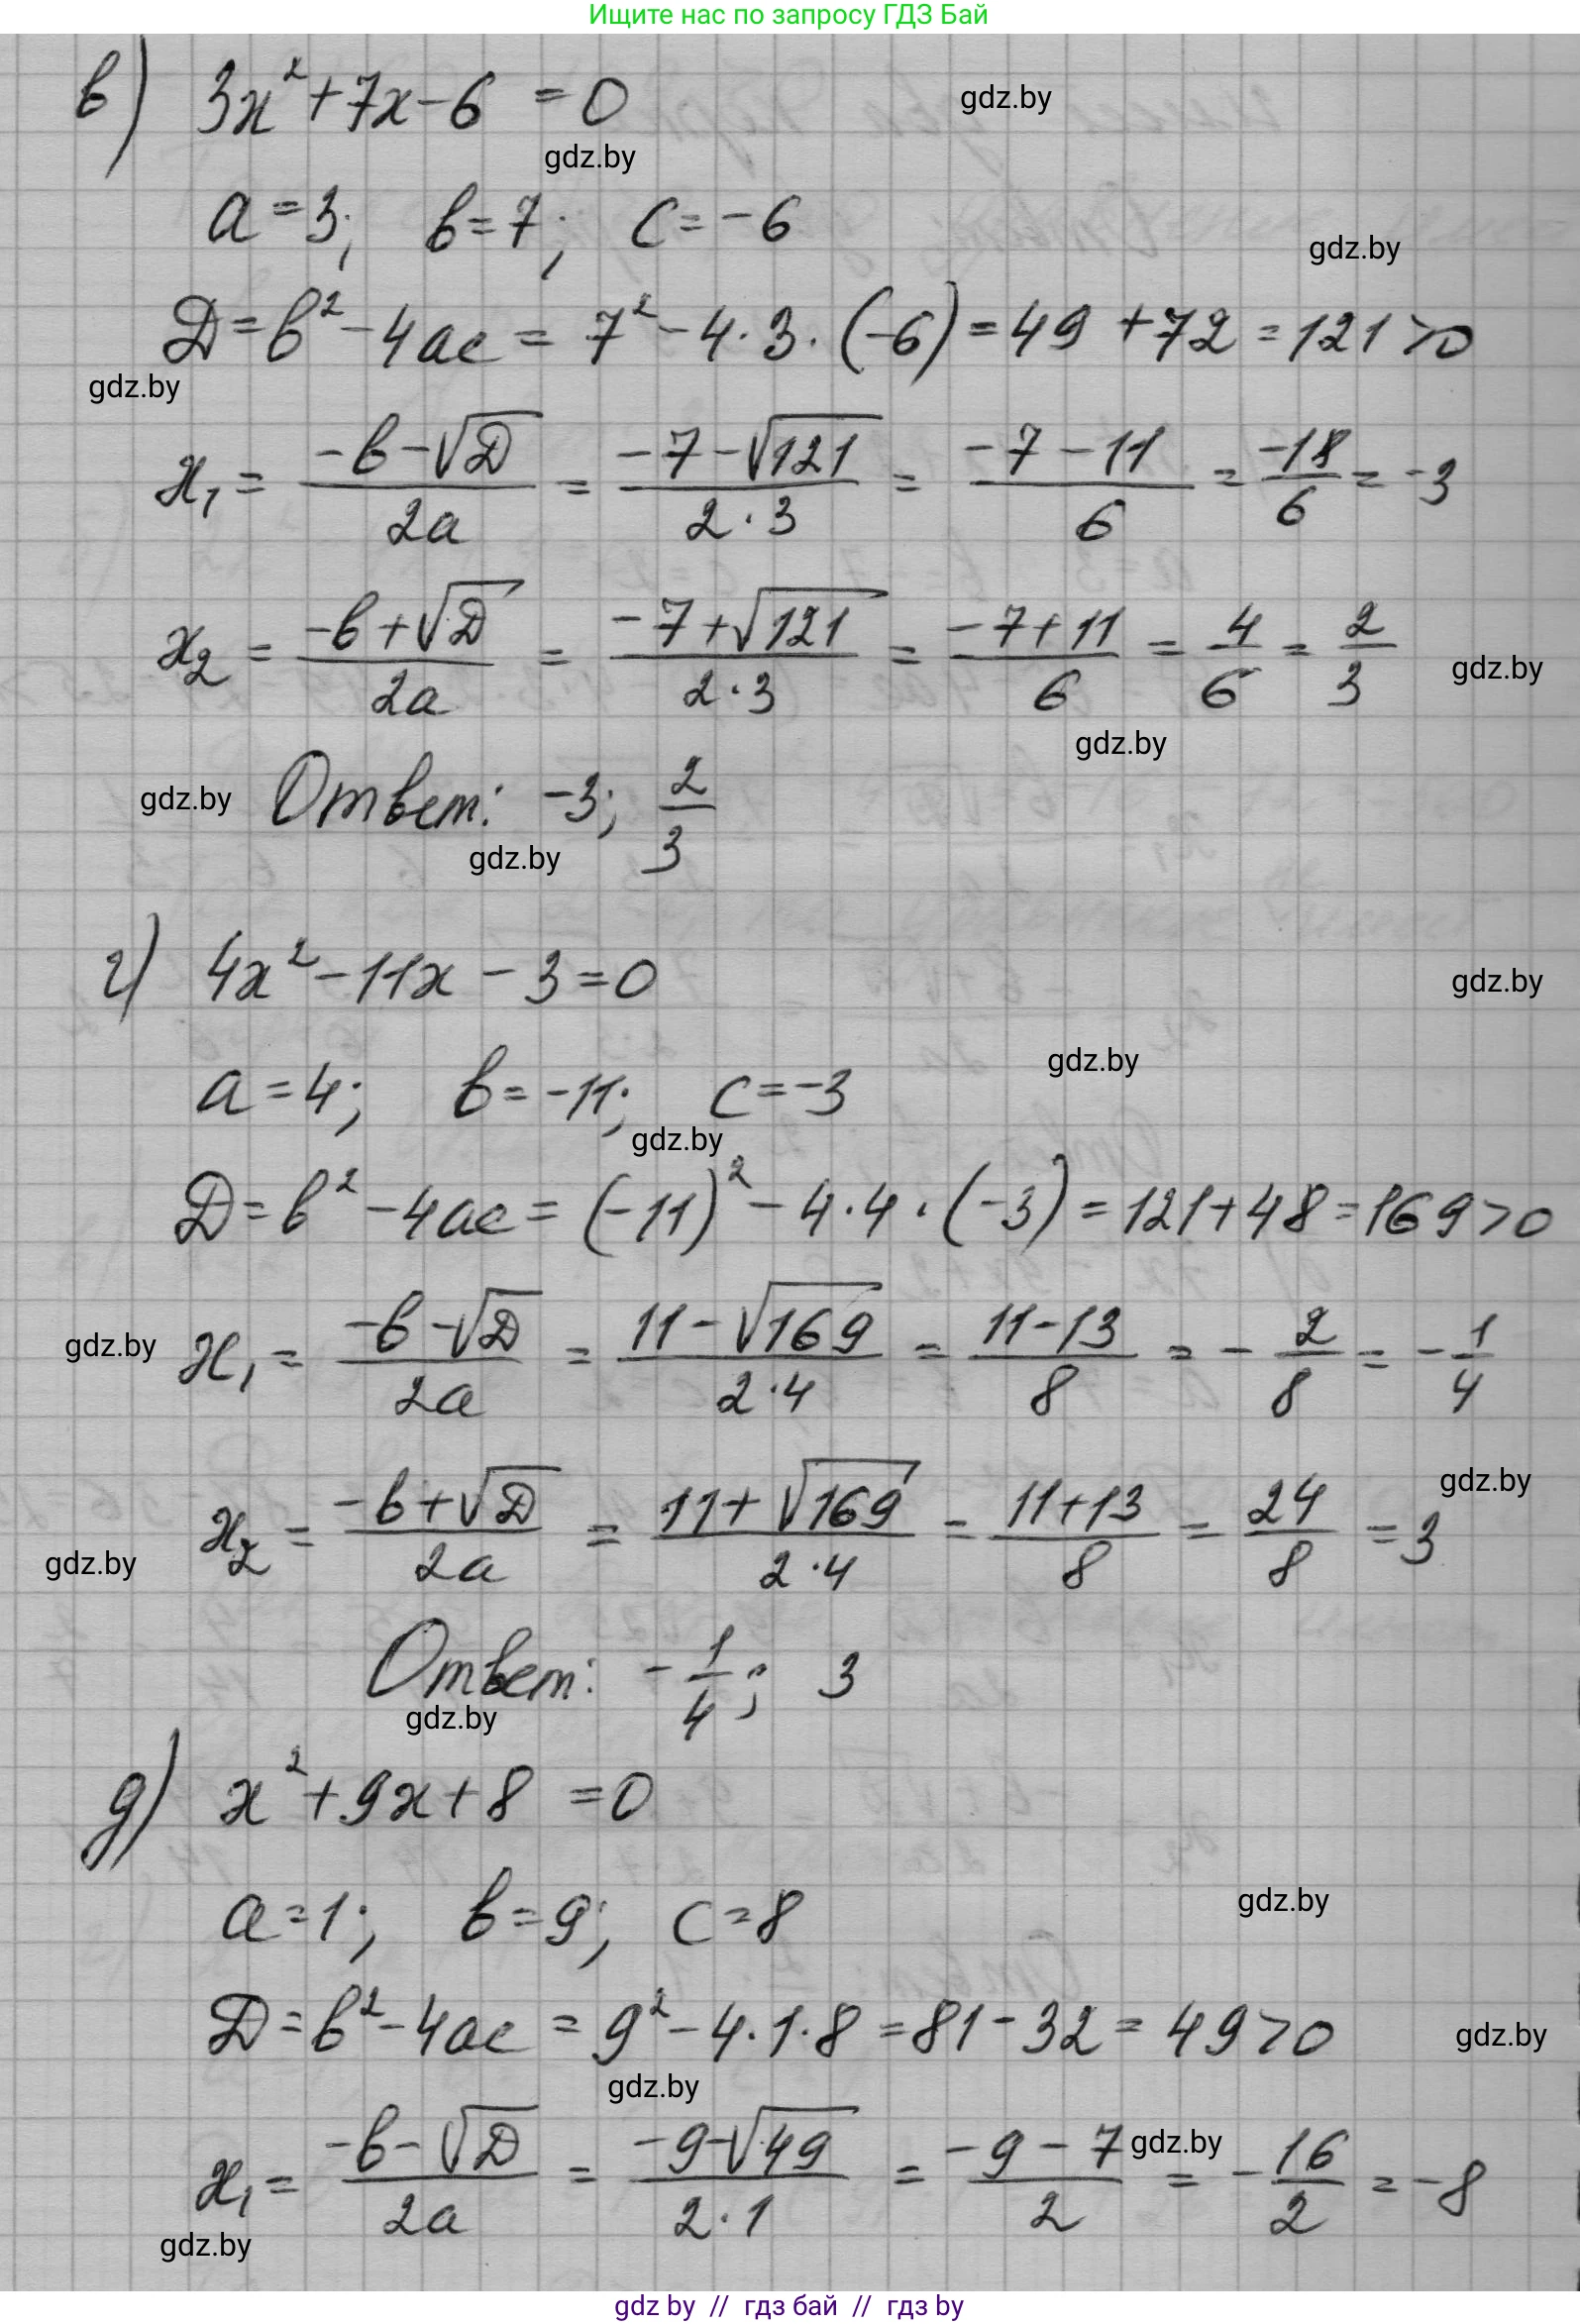 Ищите нас по запросу ГДЗ Бай
в) 3x² + 7x - 6 = 0
gdz.by
gdz.by
a = 3; b = 7; c = -6
gdz.by
D = b² - 4ac = 7² - 4·3·(-6) = 49 + 72 = 121 > 0
gdz.by
x₁ = (-b - √D)/(2a) = (-7 - √121)/(2·3) = (-7 - 11)/6 = -18/6 = -3
x₂ = (-b + √D)/(2a) = (-7 + √121)/(2·3) = (-7 + 11)/6 = 4/6 = 2/3
gdz.by
gdz.by
gdz.by
Ответ: -3; 2/3
gdz.by
г) 4x² - 11x - 3 = 0
gdz.by
gdz.by
a = 4; b = -11; c = -3
gdz.by
D = b² - 4ac = (-11)² - 4·4·(-3) = 121 + 48 = 169 > 0
gdz.by
x₁ = (-b - √D)/(2a) = (11 - √169)/(2·4) = (11 - 13)/8 = - 2/8 = - 1/4
gdz.by
x₂ = (-b + √D)/(2a) = (11 + √169)/(2·4) = (11 + 13)/8 = 24/8 = 3
gdz.by
Ответ: - 1/4; 3
gdz.by
д) x² + 9x + 8 = 0
gdz.by
a = 1; b = 9; c = 8
D = b² - 4ac = 9² - 4·1·8 = 81 - 32 = 49 > 0
gdz.by
gdz.by
x₁ = (-b - √D)/(2a) = (-9 - √49)/(2·1) = (-9 - 7)/2 = - 16/2 = -8
gdz.by
gdz.by
gdz by // гдз бай // гдз by